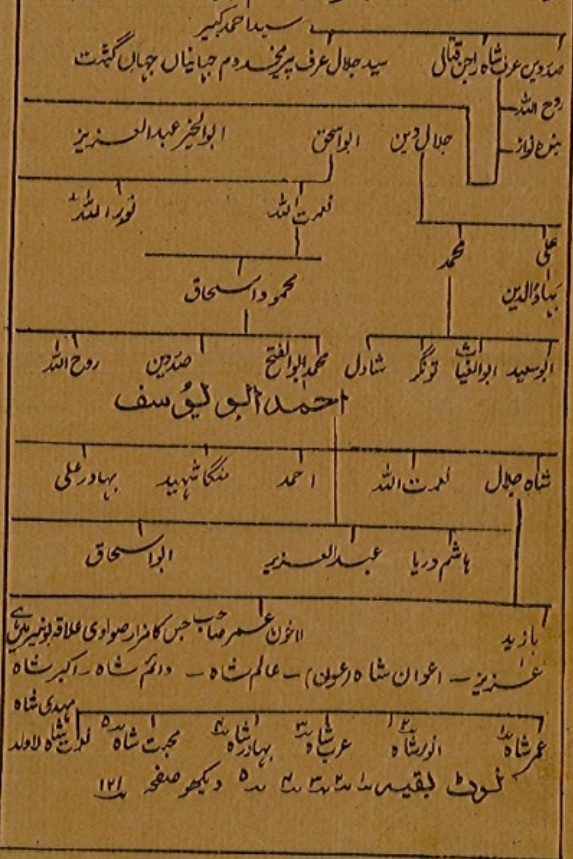 سید احمد کبیر
صدردین عرف شاہ راجن قتال سید جلال عرف پیر مخدوم جہانیاں جہاں گشت
روح اللہ
بندہ نواز جلال دین ابو اسحق ابوالخیر عبدالعزیز
نعمت اللہ نور اللہ
علی محمد
بہاؤالدین محمود اسحاق
ابو سعید ابوالغیاث تونگر شادل محمد ابوالفتح صدردین روح اللہ
احمد ابو یوسف
شاہ جلال نعمت اللہ احمد منگا شہید بہادر علی
ہاشم دریا عبدالعزیز ابو اسحاق
بازید اخون عمر صاحب جس کا مزار صواوی علاقہ بونیر میں ہے
عزیز ۔ اعوان شاہ (عون) ۔ عالم شاہ ۔ دائم شاہ ۔ اکبر شاہ
مہدی شاہ
عمر شاہ ۱ انور شاہ ۲ عرب شاہ ۳ بہادر شاہ ۴ محبت شاہ ۵ شاہ لاولد
نوٹ بقیہ ۱ ۲ ۳ ۴ ۵ دیکھو صفحہ ۱۲۱